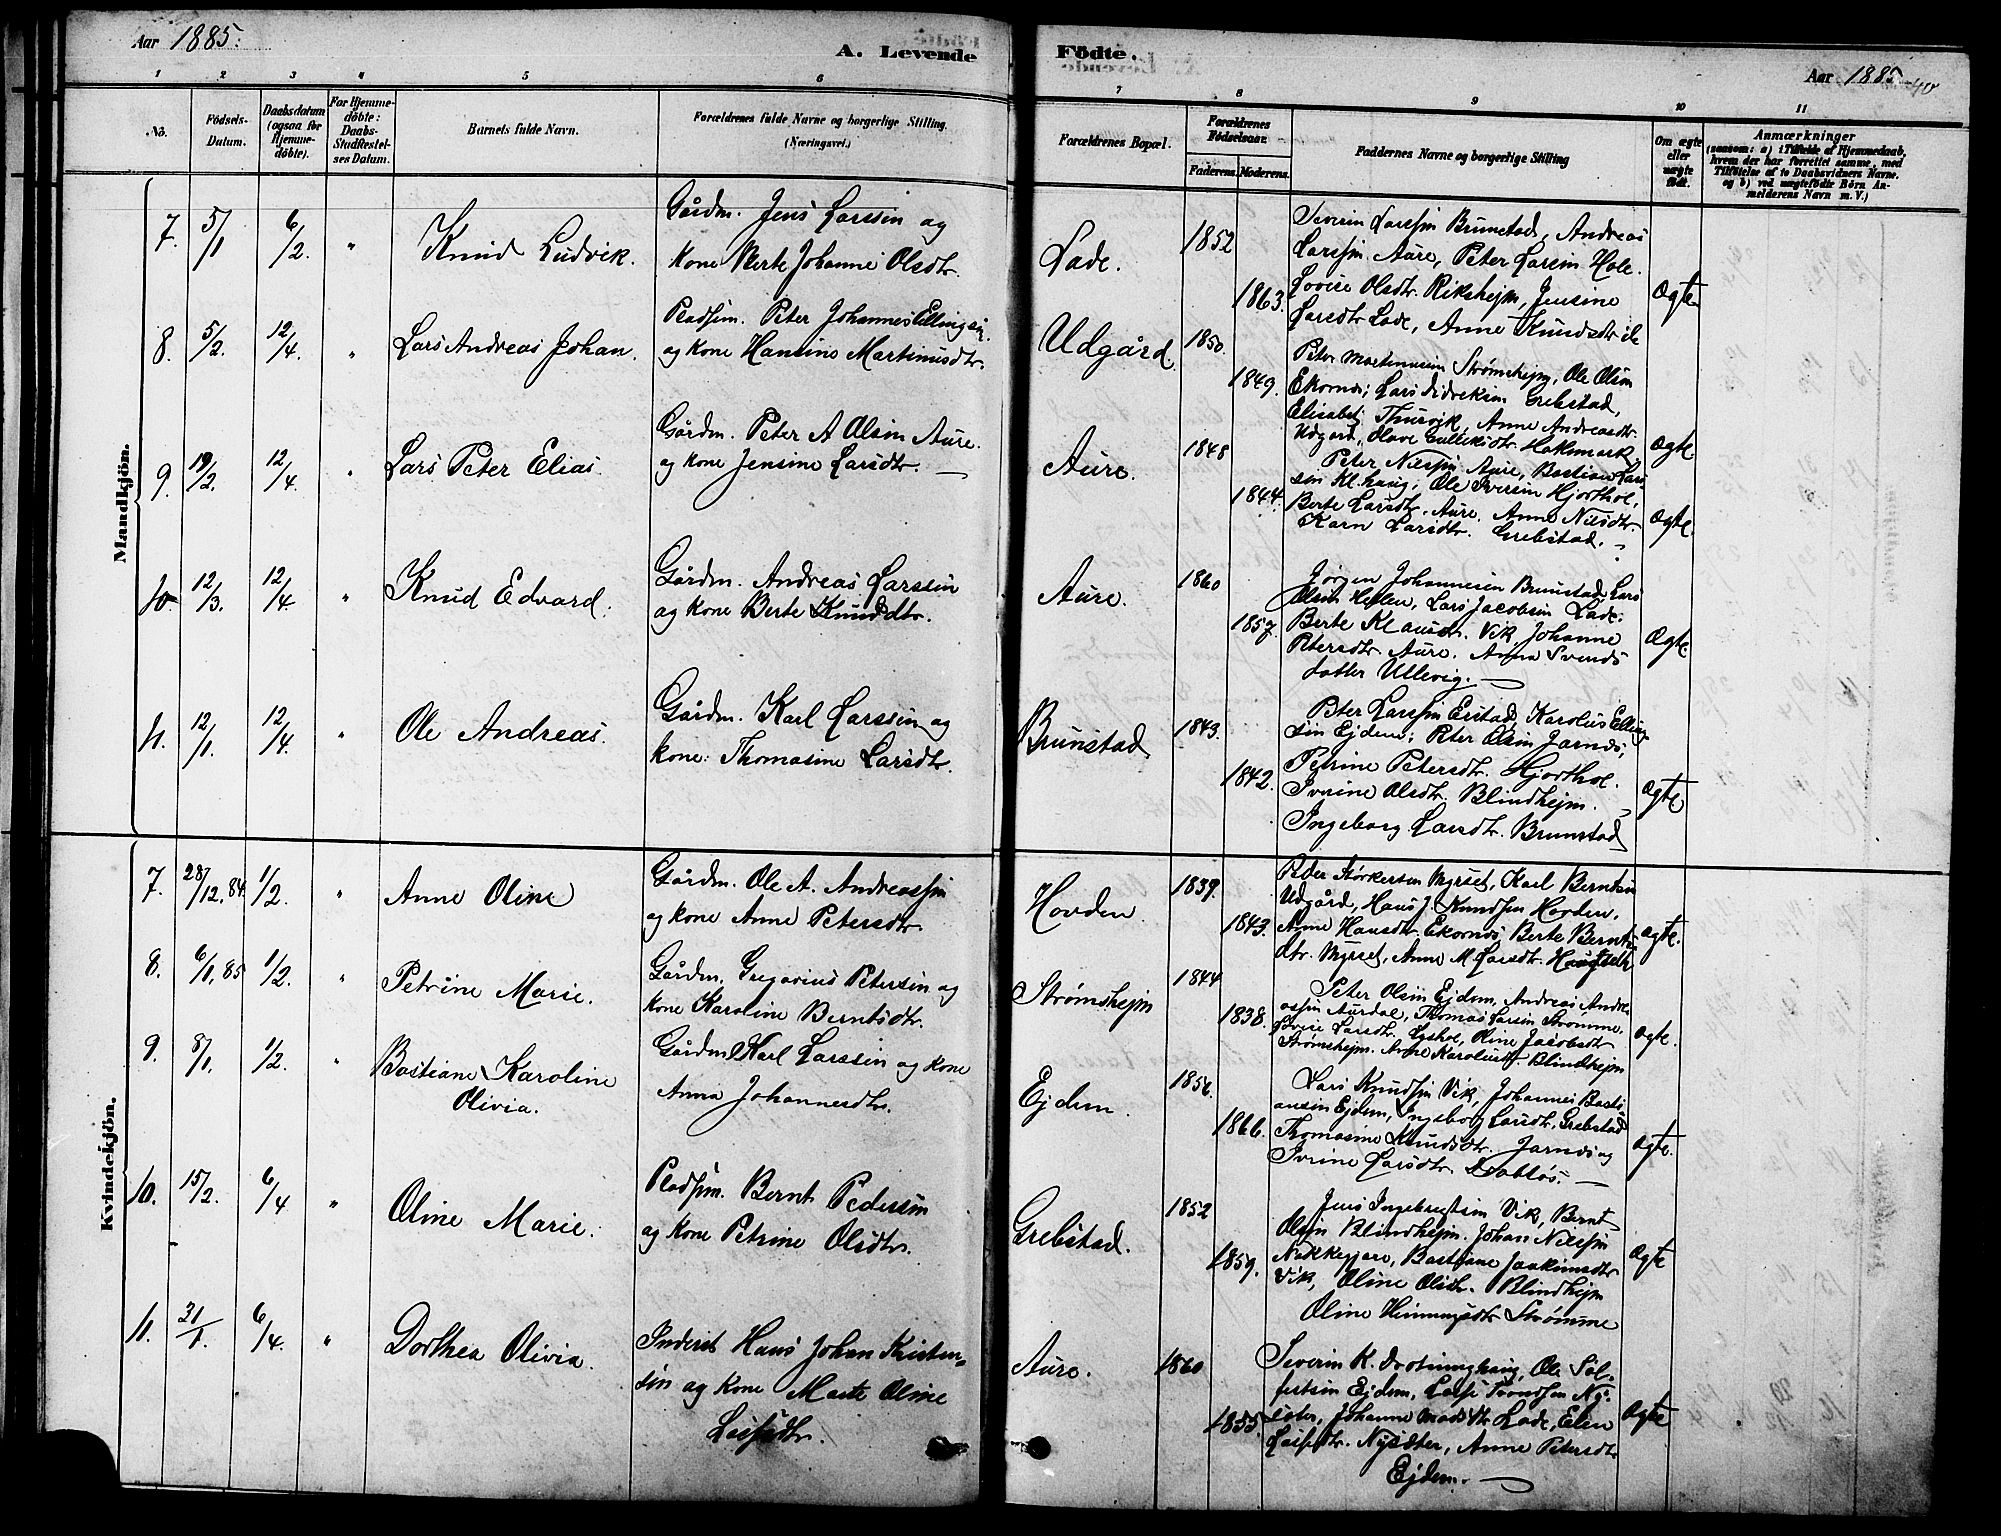 Aar 1885.
A. Levende
Födte.
Aar 1885
40
1 2 3 4 5 6
7 8 9 10 11
No.
Födsels-Datum.
Daabsdatum (ogsaa for Hjemme-döbte).
For Hjemme-döbte: Daabs-Stadfæstel-ses Datum.
Barnets fulde Navn.
Forældrenes fulde Navne og borgerlige Stilling. (Næringsvei.)
Forældrenes Bopæl.
Forældrenes Födselsaar. Faderens. Moderens.
Faddernes Navne og borgerlige Stilling
Om ægte eller uægte födt.
Anmærkninger
(saasom: a) i Tilfælde af Hjemmedaab, hvem der har forrettet samme, med Tilföielse af to Daabsvidners Navne. og b) ved uægtefödte Börn An-melderens Navn m. V.)
Mandkjön.
7. 5/1 6/2 " Knud Ludvik.
Gårdm. Jens Larssin og
kone Berte Johanne Olsdtr.
Lade. 1852 1863.
Severin Larssin Brunstad, Andreas
Larssin Aure, Peter Larsin Hole.
Lovise Olsdtr. Rikshejm, Jensine
Larsdtr Lade, Anne Knudsdtr ib
Ægte
8. 5/2. 12/4. " Lars Andreas Johan.
Pladsm. Peter Johannes Ellingsin.
og kone Hansine Martinusdtr.
Udgård. 1850. 1849.
Peter Martinusin Strømshejm, Ole Olsin
Ekornes; Lars Didreksin Grebstad,
Elisabet Thusvik, Anne Andreasdtr.
Udgård, Olave Gulleksdtr. Hakemark.
Ægte.
9. 19/2. 12/4. " Lars Peter Elias.
Gårdm. Peter A Olsin Aure.
og kone Jensine Larsdtr.
Aure. 1848 1844.
Peter Nilssin Aure, Bastian Lars-
sin Kl.haug; Ole Iversin Hjorthol.
Berte Larsdtr. Aure. Anne Nilsdtr
Karn Larsdtr. Grebstad.
Ægte.
10. 12/3. 12/4 " Knud Edvard.
Gårdm. Andreas Larssin
og kone Berte Knudsdtr.
Aure. 1860 1857.
Jørgen Johannesen Brunstad, Lars
Olsin Hellen, Lars Jacobsin Lade.
Berte Klausdtr. Vik, Johanne
Petersdtr. Aure. Anna Svends
datter Ullevig.
Ægte.
11. 12/1. 12/4. " Ole Andreas.
Gårdm. Karl Larssin og
kone: Thomasine Larsdtr.
Brunstad 1843. 1842.
Peter Larssin Erstad, Karolus Elling-
sin Ejdem; Peter Olsin Jarnes;
Petrine Petersdtr. Hjorthol.
Iverine Olsdtr. Blindhejm.
Ingeborg Larsdtr. Brunstad
Ægte
Kvindekjön.
7. 28/12, 84. 1/2. " Anne Oline
Gårdm. Ole A. Andreassin
og kone Anne Petersdtr.
Hovden. 1839. 1843.
Peder Størkersen Myrset, Karl Berntsin
Udgård, Hans J. Knudsen Hovden,
Anne Hansdtr. Ekornes, Berte Bernts-
dtr. Myrset, Anne M. Larsdtr. Haugseth
ægte.
8. 6/1, 85 1/2. " Petrine Marie.
Gårdm. Gregorius Petersin og
kone Karoline Berntsdtr.
Strømshejm 1844 1838.
Peter Olsin Ejdem, Andreas Andre-
assin Aurdal, Thomas Larsin Strømme.
Lovise Larsdtr. Lyshol, Oline Jacobsdtr
Strømshejm. Anne Karolusdtr. Blindhejm
ægte.
9. 8/1. 1/2. " Bastiane Karoline
Olivia.
Gårdm. Karl Larssin og kone
Anna Johannesdtr.
Ejdem. 1856. 1866.
Lars Knudsin Vik, Johannes Basti-
ansin Ejdem, Ingeborg Larsdtr. Grebstad
Thomasine Knudsdtr. Jarnes og
Iverine Larsdtr.
ægte.
10. 15/2. 6/4 " Oline Marie.
Pladsm. Bernt Pedersin
og kone Petrine Olsdtr.
Grebstad. 1852 1859.
Jens Ingebrigtsin Vik, Bernt
Olsin Blindhejm. Johan Nilssin
Nakkegjære, Bastiane Joakimsdtr
Vik, Oline Olsdtr. Blindhejm
Oline Hemmingsdtr Strømme
Ægte
11. 31/1. 6/4. " Dorthea Olivia.
Inderst Hans Johan Kristen-
sin og kone Marte Oline
Leifsdtr.
Aure. 1860 1855.
Severin K. Drotninghaug, Ole Sol-
festsin Ejdem, Leif Trondsen Ny-
sæter, Johanne Madsdtr Lade, Elen
Leifsdtr. Nysæter, Anne Petersdtr
Ejdem.
Ægte